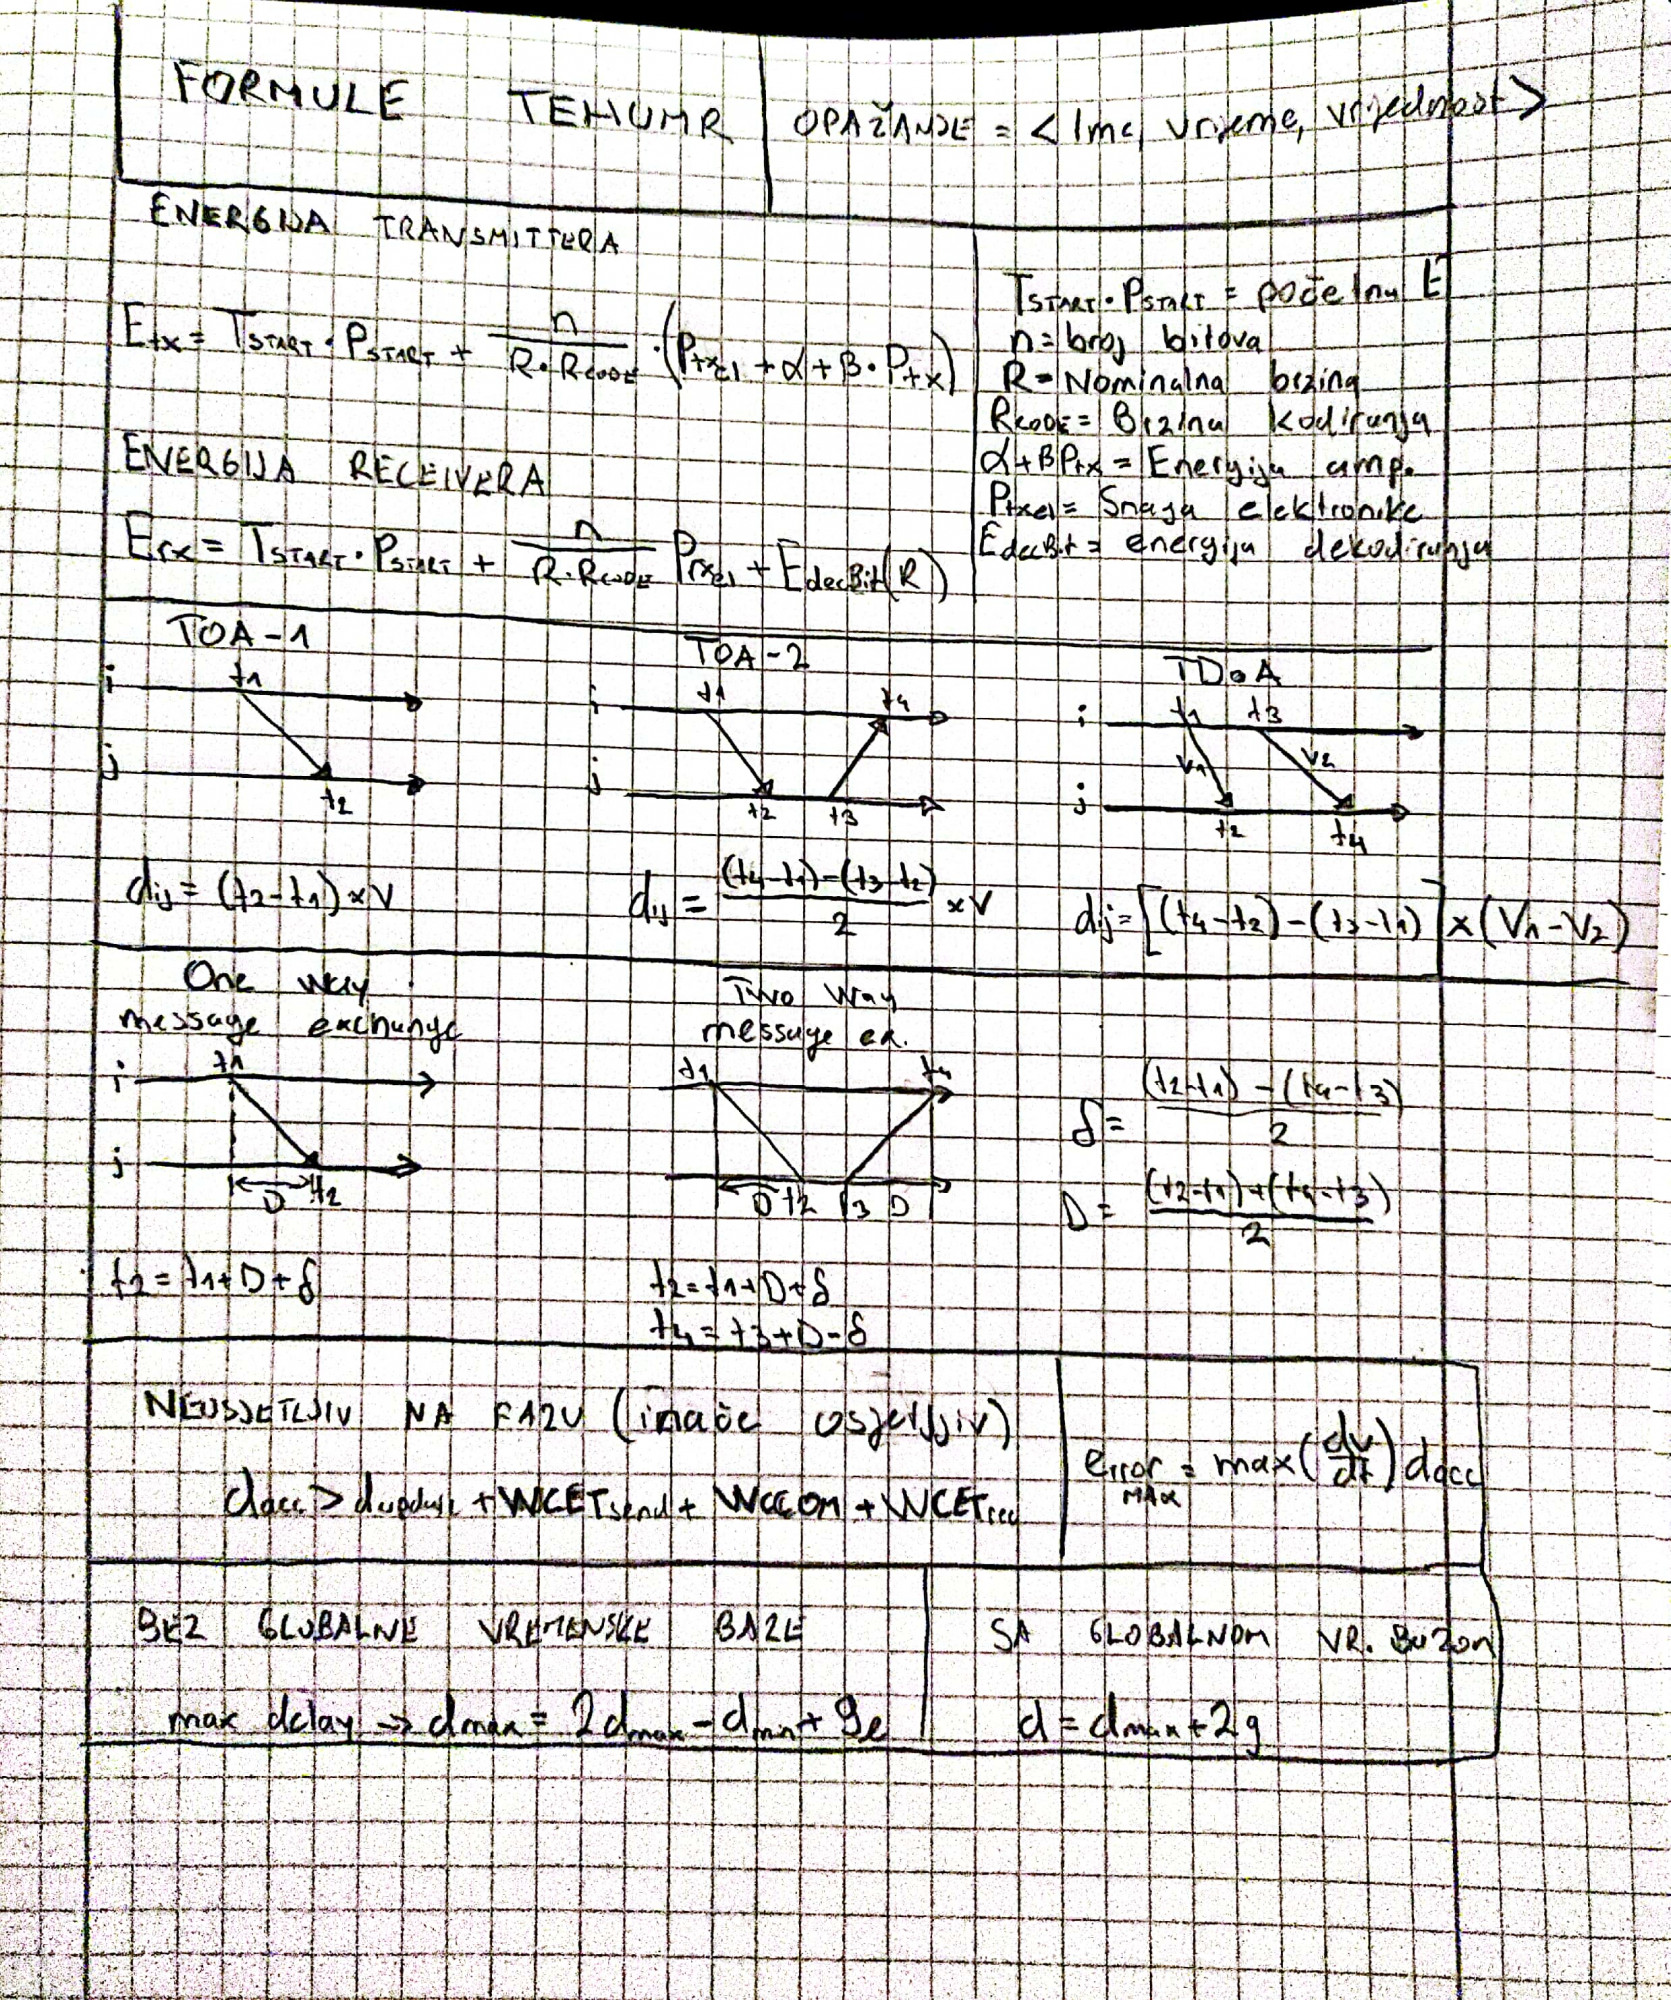 FORMULE TEHUMR
OPAŽANJE = < Ime, vrijeme, vrijednost >
ENERGIJA TRANSMITTERA
Etx = TSTART · PSTART + n / (R · RCODE) · (Ptxel + α + β · Ptx)
TSTART · PSTART = početna E
n = broj bitova
R = Nominalna brzina
RCODE = Brzina kodiranja
α + βPtx = Energija amp.
Ptxel = Snaga elektronike
EdecBit = energija dekodiranja
ENERGIJA RECEIVERA
Erx = TSTART · PSTART + n / (R · RCODE) Prxel + EdecBit(R)
TOA-1
i t1
j t2
dij = (t2 - t1) × V
TOA-2
i t1 t4
j t2 t3
dij = ((t4 - t1) - (t3 - t2)) / 2 × V
TDoA
i t1 t3
V1 V2
j t2 t4
dij = [(t4 - t2) - (t3 - t1)] × (V1 - V2)
One way
message exchange
i t1
j D t2
t2 = t1 + D + δ
Two Way
message ex.
t1 t4
D t2 t3 D
t2 = t1 + D + δ
t4 = t3 + D - δ
δ = ((t2 - t1) - (t4 - t3)) / 2
D = ((t2 - t1) + (t4 - t3)) / 2
NEOSJETLJIV NA FAZU (inače osjetljiv)
dacc > dupdate + WCETsend + WCCOM + WCETrec
error MAX = max(dv/dt) dacc
BEZ GLOBALNE VREMENSKE BAZE
max delay → dmax = 2dmax - dmin + ge
SA GLOBALNOM VR. BAZOM
d = dmax + 2g